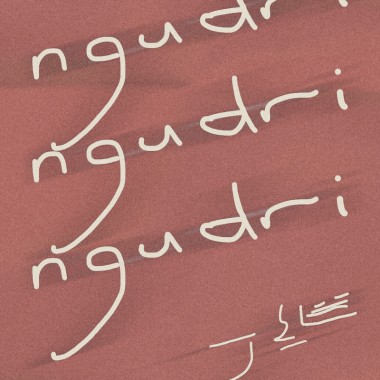 ngudri
ngudri
ngudri